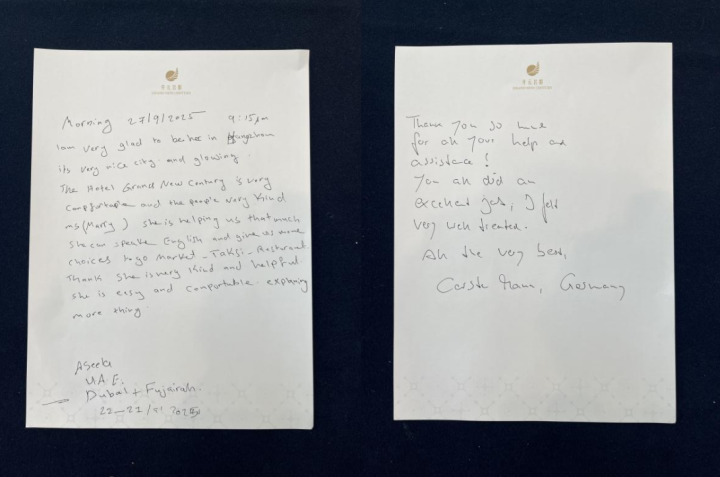 Morning 27/9/2025 9:15am
Iam very glad to be her in Hangzhou
its very nice city and glowing.
The Hotel Grand New Century is very
Comfortable and the people very Kind
ms (Marry) she is helping us that much
she can speake English and give us more
choices to go market - Taksi - Rasturant
Thank she is very kind and helpful
she is easy and comfortable explaning
more thing.
U.A.E.
Dubai + Fujairah.
Thank you so much
for all your help and
assistance!
You all did an
excellent job, I felt
very well treated.
All the very best,
Germany